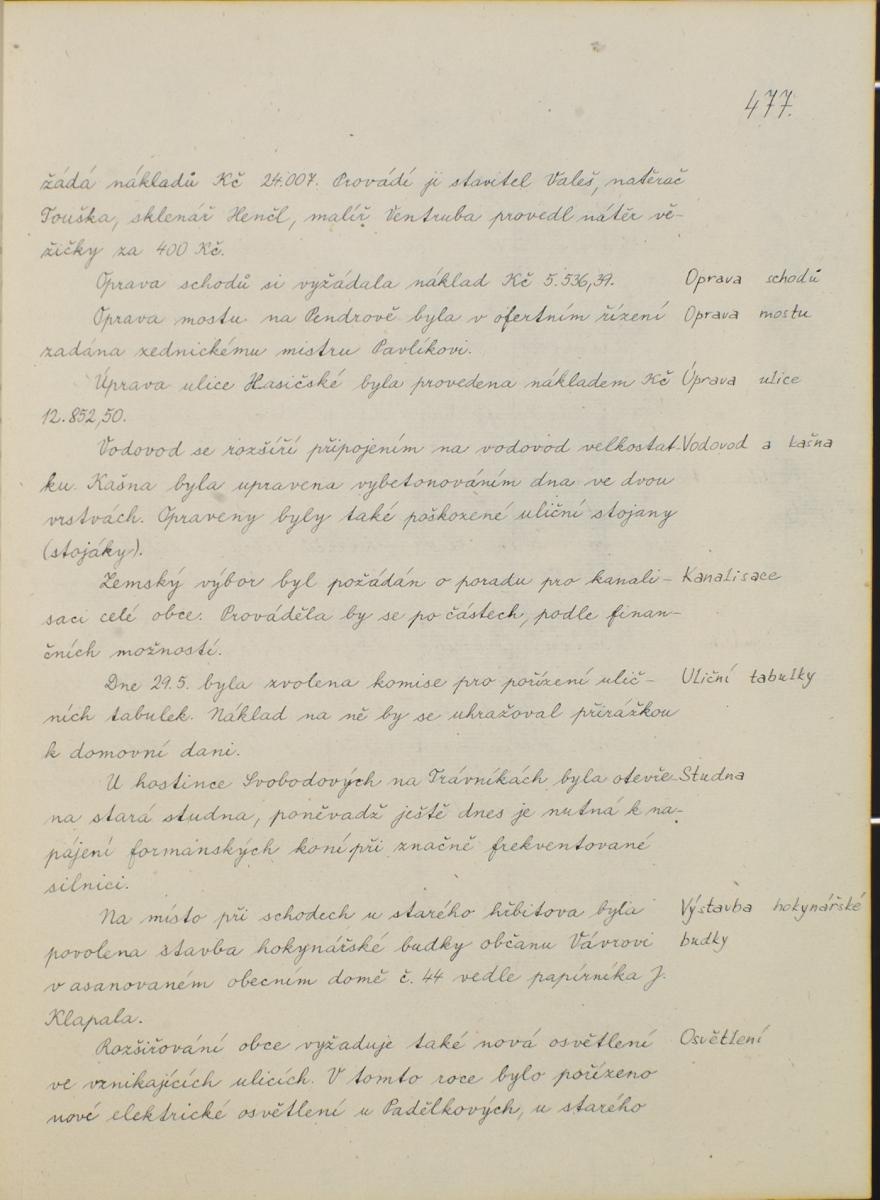 477.
žádá nákladů Kč 24.007. Provádí ji stavitel Valeš, natěrač
Touška, sklenář Henčl, malíř Ventruba provedl nátěr vě-
žičky za 400 Kč.
Oprava schodů si vyžádala náklad Kč 5.536,39. Oprava schodů
Oprava mostu na Pendrově byla v ofertním řízení Oprava mostu
zadána zednickému mistru Pavlíkovi.
Úprava ulice Hasičské byla provedena nákladem Kč Úprava ulice
12.852,50.
Vodovod se rozšíří připojením na vodovod velkostat- Vodovod a kašna
ku. Kašna byla upravena vybetonováním dna ve dvou
vrstvách. Opraveny byly také poškozené uliční stojany
(stojáky).
Zemský výbor byl požádán o poradu pro kanali- Kanalisace
saci celé obce. Prováděla by se po částech, podle finan-
čních možností.
Dne 29.5. byla zvolena komise pro pořízení ulič- Uliční tabulky
ních tabulek. Náklad na ně by se uhražoval přirážkou
k domovní dani.
U hostince Svobodových na Trávníkách byla otevře- Studna
na stará studna, poněvadž ještě dnes je nutná k na-
pájení formanských koní při značně frekventované
silnici.
Na místo při schodech u starého hřbitova byla Výstavba hokynářské
povolena stavba hokynářské budky občanu Vávrovi budky
v asanovaném obecním domě č. 44 vedle papírníka J.
Klapala.
Rozšiřování obce vyžaduje také nová osvětlení Osvětlení
ve vznikajících ulicích. V tomto roce bylo pořízeno
nové elektrické osvětlení u Padělkových, u starého